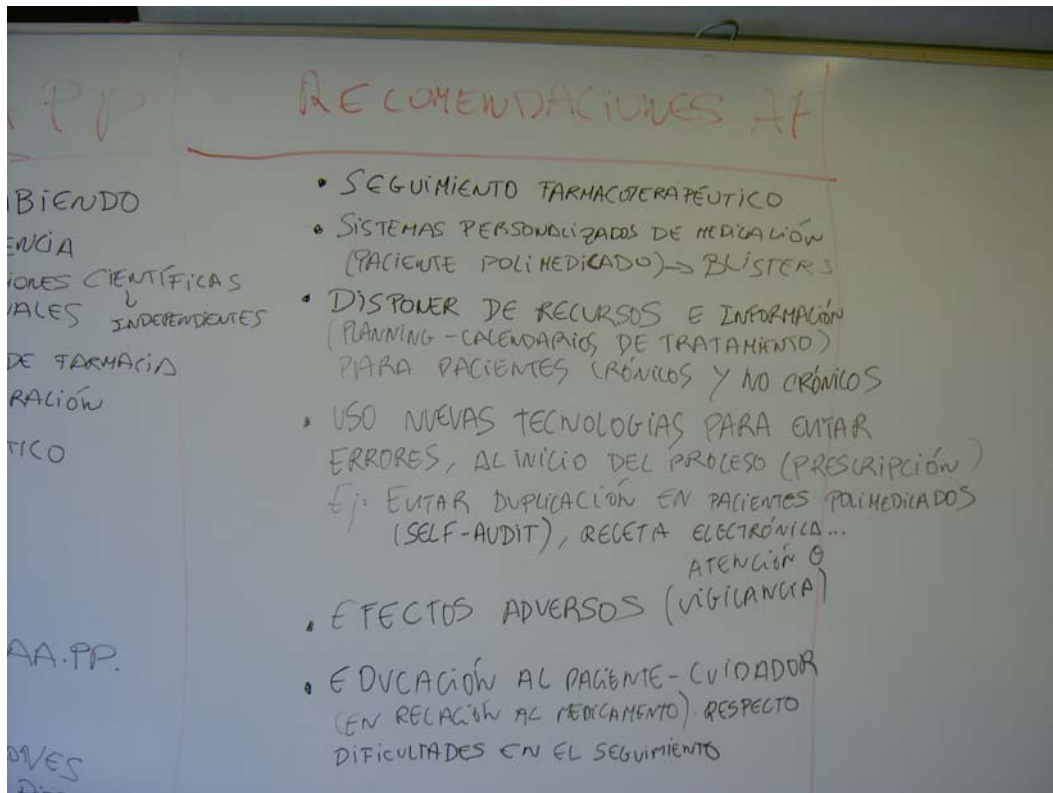 PP
BIENDO
ENCIA
IONES CIENTÍFICAS
ALES INDEPENDIENTES
DE FARMACIA
RACIÓN
TICO
AA.PP.
ONES
RECOMENDACIONES AF
• SEGUIMIENTO FARMACOTERAPÉUTICO
• SISTEMAS PERSONALIZADOS DE MEDICACIÓN
(PACIENTE POLIMEDICADO) → BLISTERS
• DISPONER DE RECURSOS E INFORMACIÓN
(PLANNING - CALENDARIOS DE TRATAMIENTO)
PARA PACIENTES CRÓNICOS Y NO CRÓNICOS
• USO NUEVAS TECNOLOGIAS PARA EVITAR
ERRORES, AL INICIO DEL PROCESO (PRESCRIPCIÓN)
Ej: EVITAR DUPLICACIÓN EN PACIENTES POLIMEDICADOS
(SELF-AUDIT), RECETA ELECTRÓNICA...
ATENCIÓN O
• EFECTOS ADVERSOS (VIGILANCIA)
• EDUCACIÓN AL PACIENTE - CUIDADOR
(EN RELACIÓN AL MEDICAMENTO). RESPECTO
DIFICULTADES EN EL SEGUIMIENTO